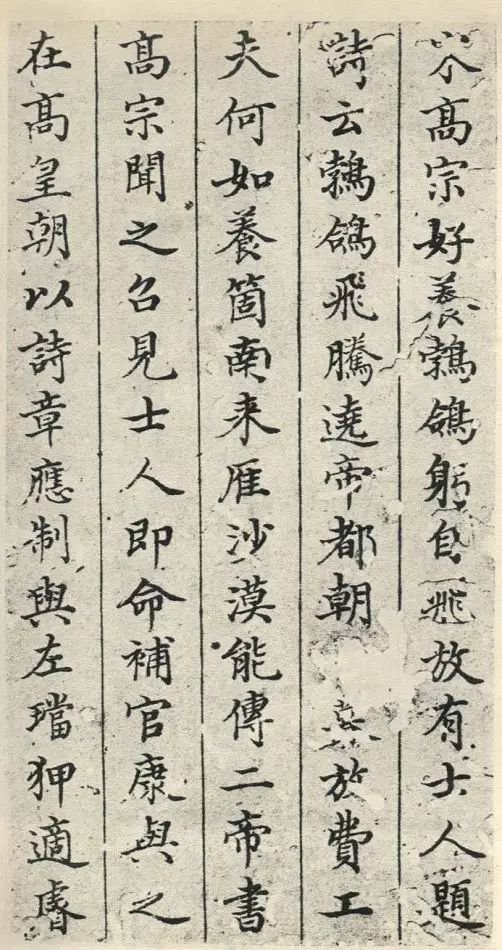 髙宗好養鵓鴿躬自飛放有士人題
詩云鵓鴿飛騰遶帝都朝放費工
夫何如養箇南来雁沙漠能傳二帝書
髙宗聞之召見士人即命補官康與之
在髙皇朝以詩章應制與左璫狎適睿